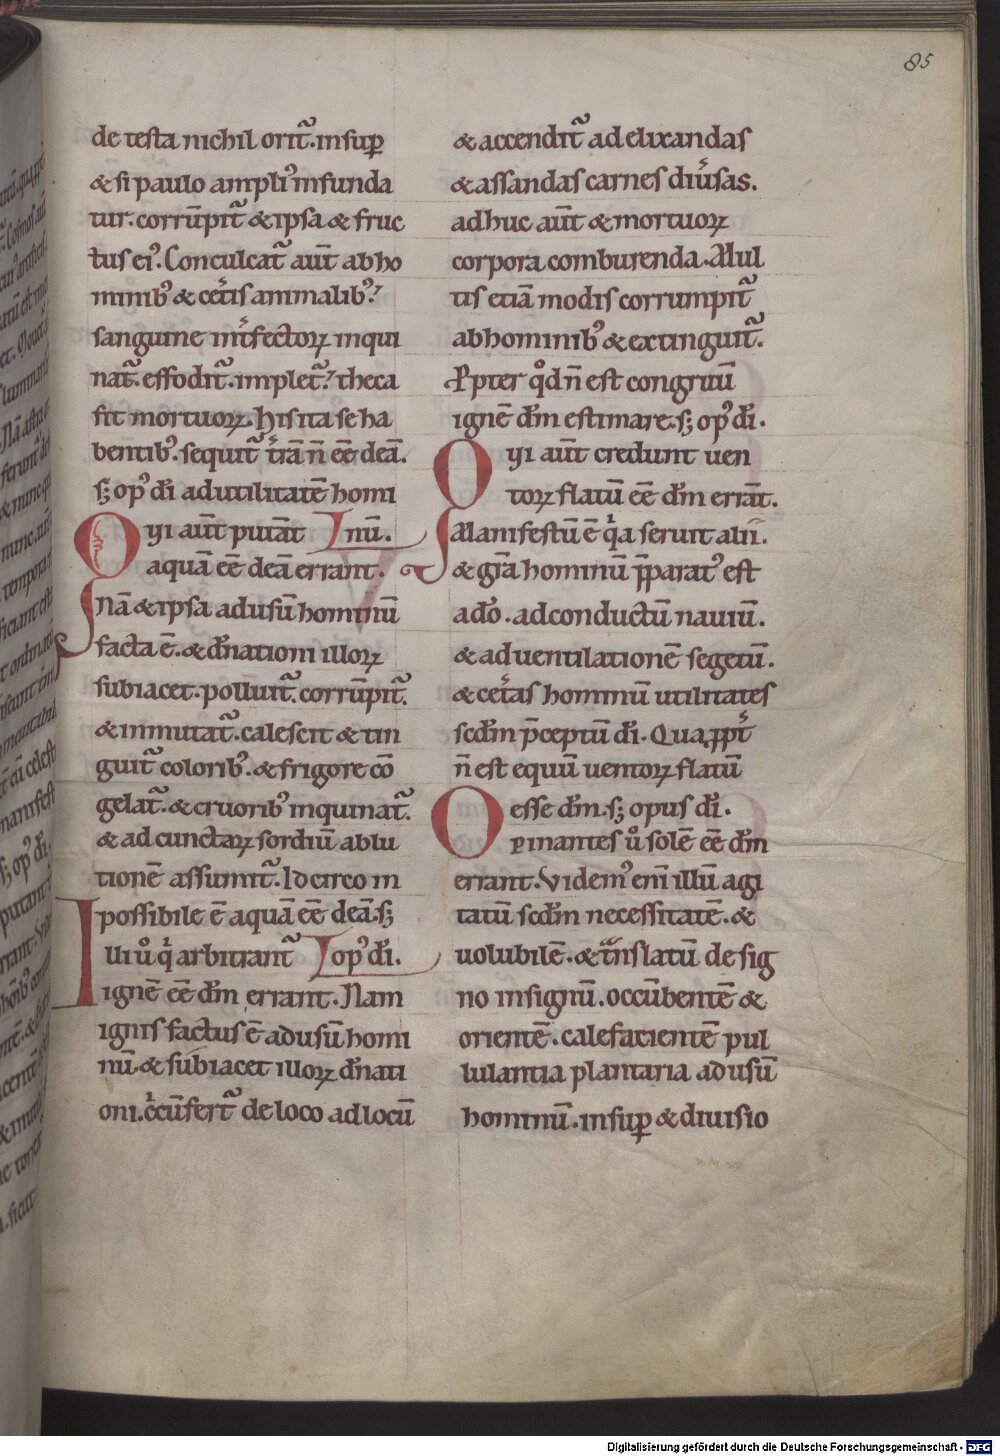 85
de testa nichil orit᷑. insuꝑ
& si paulo ampliꝰ infunda
tur. corrūpit᷑ & ipsa & fruc
tus eiꝰ. Conculcat᷑ aut̄ ab ho
minibꝰ & cet̉is animalibꝰ.
sanguine int̉fectoꝝ inqui
nat᷑. effodit᷑. implet᷑. theca
fit mortuoꝝ. His ita se ha
bentibꝰ. sequit᷑ t̉rā n̄ eē deā.
s; opꝰ dī ad utilitatē homi
Qyi aut̄ putāt nū.
aquā eē deā errant.
Nā & ipsa ad usū hominū
facta ē. & dn̄ationi illoꝝ
subiacet. polluit᷑. corrūpit᷑.
& inmutat᷑. calescit & tin
guit᷑ coloribꝰ. & frigore cō
gelat᷑. & cruoribꝰ inquinat᷑.
& ad cunctaꝝ sordiū ablu
tionē assumit᷑. Idcirco in
possibile ē aquā eē deā. s;
Illi uͦ qͥ arbitrant᷑ opꝰ dī.
ignē eē dm̄ errant. Nam
ignis factus ē ad usū homi
nū. & subiacet illoꝝ dn̄ati
oni. cͥcūfert᷑ de loco ad locū
& accendit᷑ ad elixandas
& assandas carnes diūsas.
adhuc aut̄ & mortuoꝝ
corpora comburenda. Mul
tis etiā modis corrumpit᷑
ab hominibꝰ & extinguit᷑.
Ꝓpter qͦd n̄ est congruū
ignē dm̄ estimare. s; opꝰ dī.
Qyi aut̄ credunt uen
toꝝ flatū eē dm̄ errāt.
Manifestū ē qͥa seruit alii.
& gr̄a hominū p̄paratꝰ est
a dō. ad conductū nauiū.
& ad uentilationē segetū.
& cet̉as hominū utilitates
scd̄m p̄ceptū dī. Qua ꝓpt̉
n̄ est equū uentoꝝ flatū
esse dm̄. s; opus dī.
Opinantes uͦ solē eē dm̄
errant. Videmꝰ enī illū agi
tatū scd̄m necessitatē. &
uolubilē. & tͣnslatū de sig
no in signū. occūbentē &
orientē. calefacientē pul
lulantia plantaria ad usū
hominū. insuꝑ & diuisio
Digitalisierung gefördert durch die Deutsche Forschungsgemeinschaft - DFG